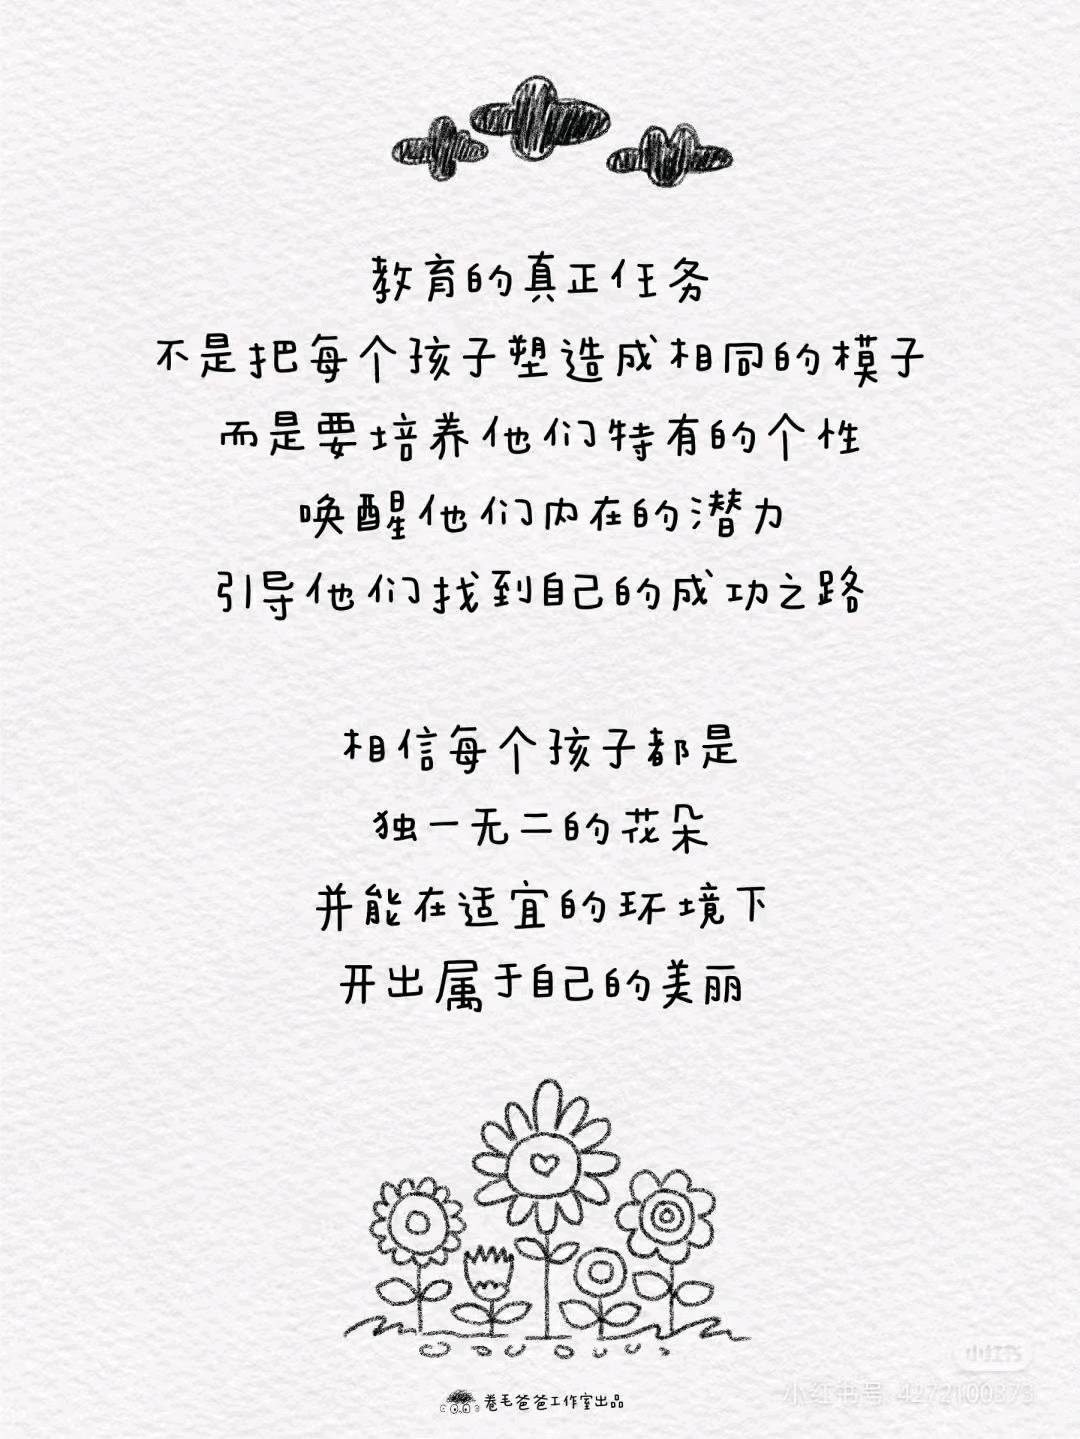 教育的真正任务
不是把每个孩子塑造成相同的模子
而是要培养他们特有的个性
唤醒他们内在的潜力
引导他们找到自己的成功之路
相信每个孩子都是
独一无二的花朵
并能在适宜的环境下
开出属于自己的美丽
卷毛爸爸工作室出品
小红书
小红书号 4272100373